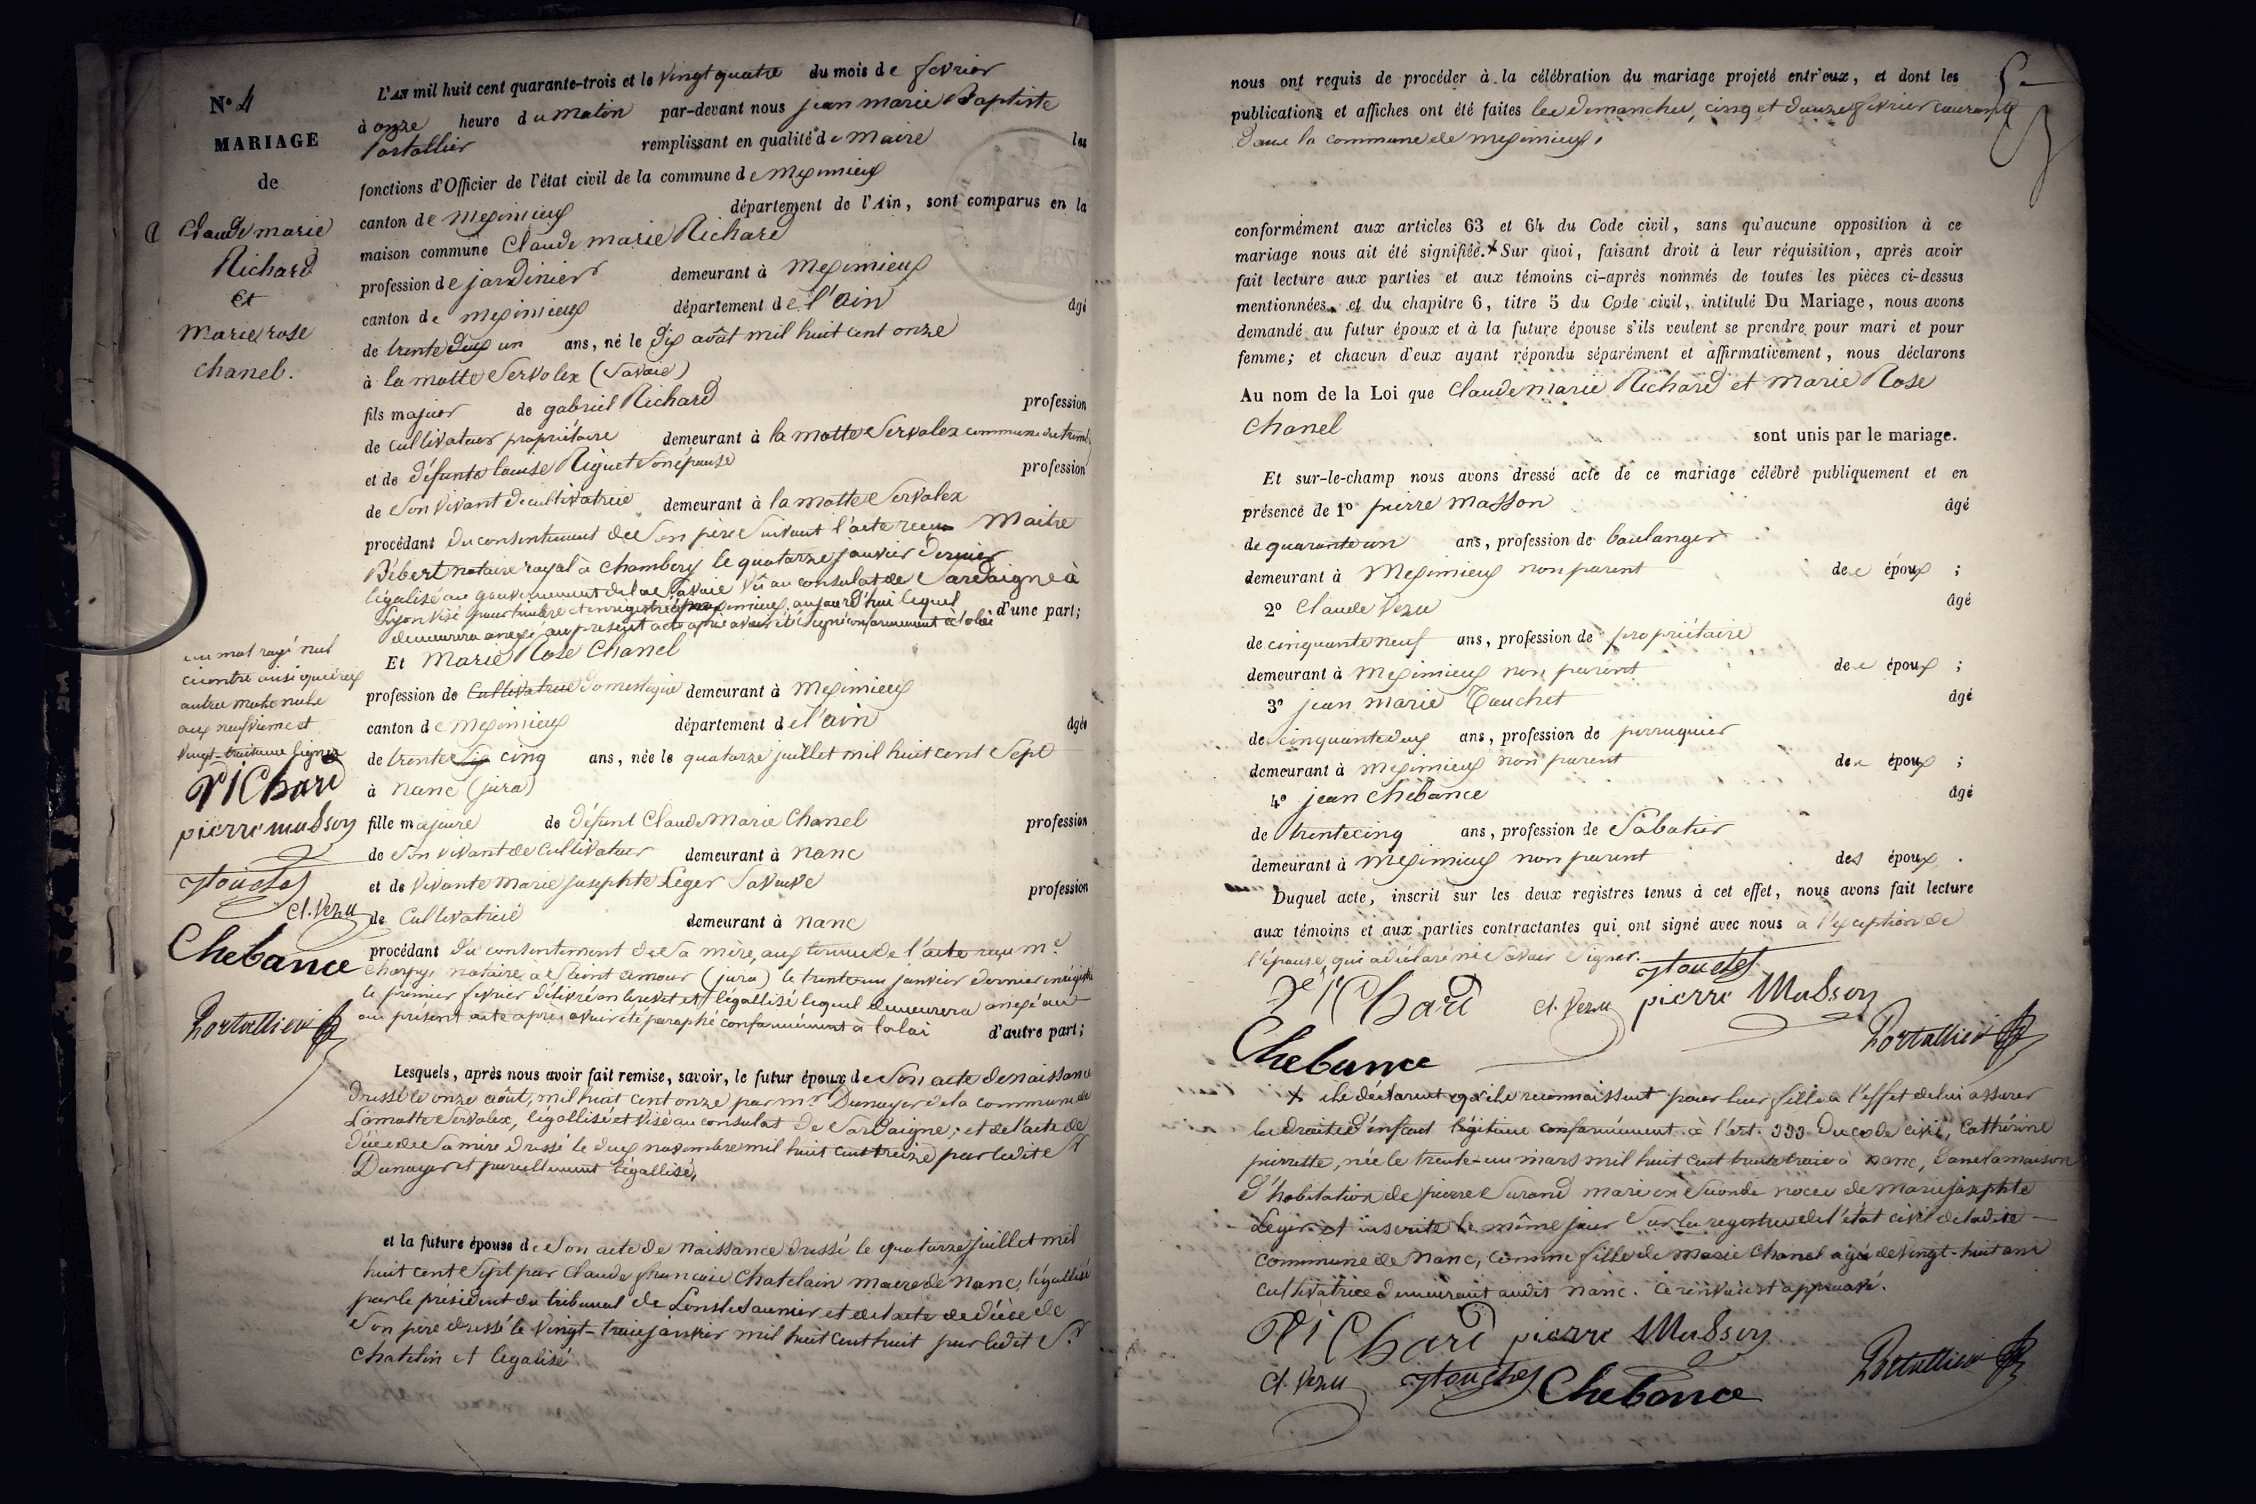 N° 4
MARIAGE
de
Claude marie
Richard
Et
Marie rose
chanel.
L'AN mil huit cent quarante-trois et le vingt quatre du mois de fevrier
à onze heure du matin par-devant nous jean marie Baptiste
Portallier remplissant en qualité de Maire les
fonctions d'Officier de l'état civil de la commune de Meximieux
canton de Meximieux département de l'Ain, sont comparus en la
maison commune Claude marie Richard
profession de jardinier demeurant à Meximieux
canton de meximieux département de l'ain âgé
de trente deux un ans, né le dix août mil huit cent onze
à la motte Servolex (Savoie)
fils majeur de gabriel Richard profession
de cultivateur propriétaire demeurant à la motte Servolex commune du
et de défunte louise Riguet son épouse profession
de Son vivant de cultivatrice demeurant à la motte Servolex
procédant du consentement de Son père Suivant l'acte reçu Maitre
Bébert notaire royal à chambery le quatorze janvier dernier
légalisé au gouvernement de la Savoie Vû au consulat de Sardaigne à
Lyon visé pour timbre et enregistré à meximieux aujourd'hui lequel
demeurera anexé au présent acte après avoir été signé conformément à la loi d'une part;
un mot rayé nul
ci contre ainsi que deux
autres mots nuls
aux neuvième et
vingt-troisième lignes
Richard
pierre Masson
Touchet
Cl. Vezu
Chebance
Portallier
Et Marie Rose Chanel
profession de Cultivatrice domestique demeurant à Meximieux
canton de meximieux département de l'ain âgée
de trente Six cinq ans, née le quatorze juillet mil huit cent Sept
à nanc (jura)
fille majeure de défunt Claude Marie Chanel profession
de Son vivant de Cultivateur demeurant à nanc
et de vivante Marie josephte Léger Sa veuve profession
de Cultivatrice demeurant à nanc
procédant du consentement de Sa mère, aux termes de l'acte reçu me
charpy, notaire à Saint amour (jura) le trente un janvier dernier enregistré
le premier fevrier délivré en brevet et légallisé lequel demeurera anexé au
au présent acte après avoir été paraphé conformément à la loi d'autre part;
Lesquels, après nous avoir fait remise, savoir, le futur époux de Son acte de naissance
dressé le onze août, mil huit cent onze par mr Dunoyer de la commune de
Lamotte Servolex, légallisé et visé au consulat de Sardaigne; et de l'acte de
décès de Sa mère dressé le deux novembre mil huit cent treize par ledit Sr
Dunoyer et pareillement légallisé,
et la future épouse de Son acte de naissance dressé le quatorze juillet mil
huit cent Sept par Claude francois Chatelain maire de nanc, légallisé
par le président du tribunal de Lons le Saunier et de l'acte de décès de
Son père dressé le vingt-trois janvier mil huit cent huit par ledit Sr
chatelin et légalisé
nous ont requis de procéder à la célébration du mariage projeté entr'eux, et dont les
publications et affiches ont été faites les dimanches, cinq et douze fevrier courant
dans la commune de meximieux,
conformément aux articles 63 et 64 du Code civil, sans qu'aucune opposition à ce
mariage nous ait été signifiée. X Sur quoi, faisant droit à leur réquisition, après avoir
fait lecture aux parties et aux témoins ci-après nommés de toutes les pièces ci-dessus
mentionnées, et du chapitre 6, titre 5 du Code civil, intitulé Du Mariage, nous avons
demandé au futur époux et à la future épouse s'ils veulent se prendre pour mari et pour
femme; et chacun d'eux ayant répondu séparément et affirmativement, nous déclarons
Au nom de la Loi que Claude marie Richard et Marie Rose
Chanel
sont unis par le mariage.
Et sur-le-champ nous avons dressé acte de ce mariage célébré publiquement et en
présence de 1° pierre Masson âgé
de quarante un ans, profession de boulanger
demeurant à Meximieux non parent des époux ;
2° Claude Vezu âgé
de cinquante neuf ans, profession de propriétaire
demeurant à Meximieux non parent des époux ;
3° jean marie Touchet âgé
de cinquante deux ans, profession de perruquier
demeurant à meximieux non parent des époux ;
4° jean chebance âgé
de trente cinq ans, profession de Sabotier
demeurant à Meximieux non parent des époux .
Duquel acte, inscrit sur les deux registres tenus à cet effet, nous avons fait lecture
aux témoins et aux parties contractantes qui ont signé avec nous à l'exception de
l'épouse, qui a déclaré ne Savoir Signer.
Richard Cl. Vezu Touchet pierre Masson
Chebance Portallier
X ils déclarent qu'ils reconnaissent pour leur fille à l'effet de lui assurer
les droits d'enfant légitime conformément à l'art. 333 Du code civil, Cathérine
pierrette, née le trente-un mars mil huit cent trente trois à nanc, dans la maison
d'habitation de pierre Durand mari en Seconde noces de Marie josephte
Léger et inscrite le même jour Sur les registres de l'état civil de ladite
commune de Nanc, comme fille de Marie Chanel agée de vingt-huit ans
cultivatrice demeurant audit nanc. Ce renvoi est approuvé.
Richard pierre Masson
Cl. Vezu Touchet Chebance Portallier